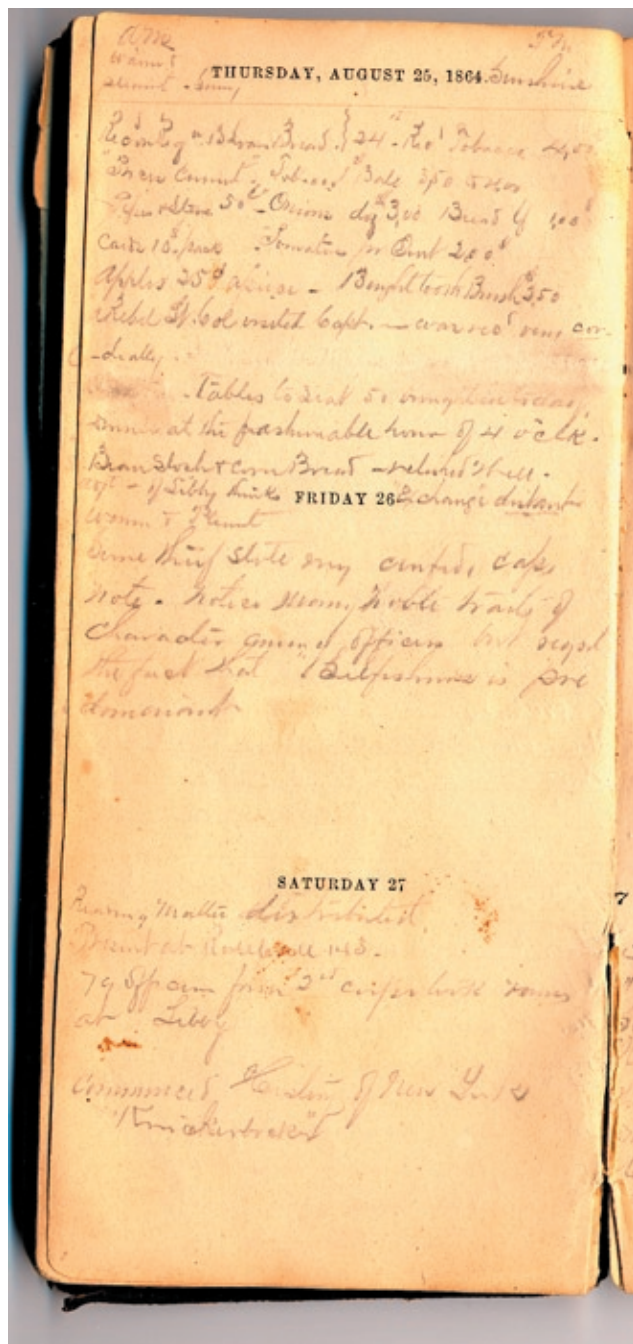 AM
P M
warm &
THURSDAY, AUGUST 25, 1864. Sunshine
Bread 24 Rec'd Tobacco 4,00
Tobacco Bale
50 Onions dz 3,00 Bread 1,00
Cards 10 pack Tomatoes pr Qut 2,00
Apples 25 - Bought tooth Brush 3,50
Rebel Lt. Col visited Capt. - was rec'd very cor-
-dially
Tables to seat 50 brought in today
at the fashionable hour of 4 o'clk.
Bean Slosh & corn Bread -
of Libby thinks FRIDAY 26 Exchange distant
warm &
Some thief stole my cap,
note - notice many noble traits of
character among officers but regret
the fact that "Selfishness is pre
dominant
SATURDAY 27
Reading Matter distributed
Present at Roll call 143.
79 Officers from 2nd corps took rooms
at Libby
Commenced History of New York
"Knickerbocker"